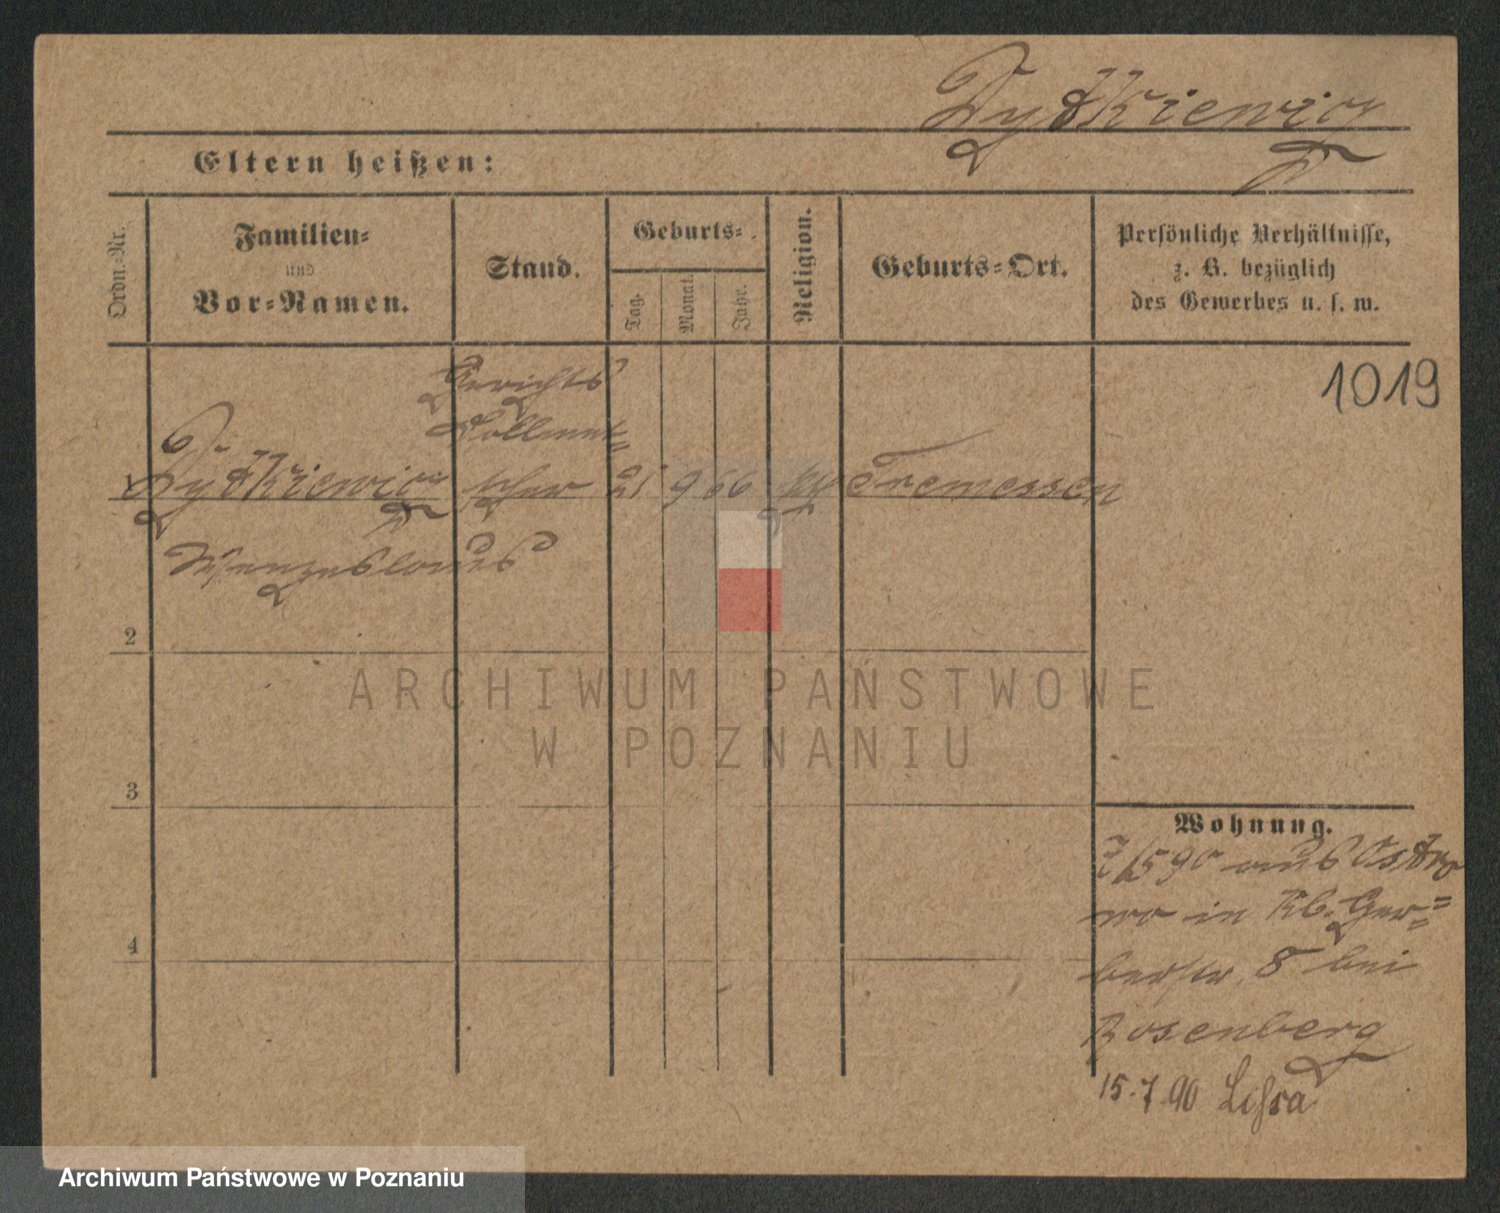 Dydkiewicz
Eltern heißen:
Ordn.-Nr.
Familien-
und
Vor-Namen.
Stand.
Geburts-
Tag.
Monat.
Jahr.
Religion.
Geburts-Ort.
Persönliche Verhältnisse,
z. B. bezüglich
des Gewerbes u. s. w.
1019
Gerichts
Dollmet-
1 Dydkiewicz scher 21 9 66 kth Tremessen
Wenzeslaus
2
ARCHIWUM PAŃSTWOWE
W POZNANIU
3
Wohnung.
7/5 90 aus Ostro
wo in Kl. Ger-
berstr. 8 bei
Rosenberg
4
15.7.90
Archiwum Państwowe w Poznaniu